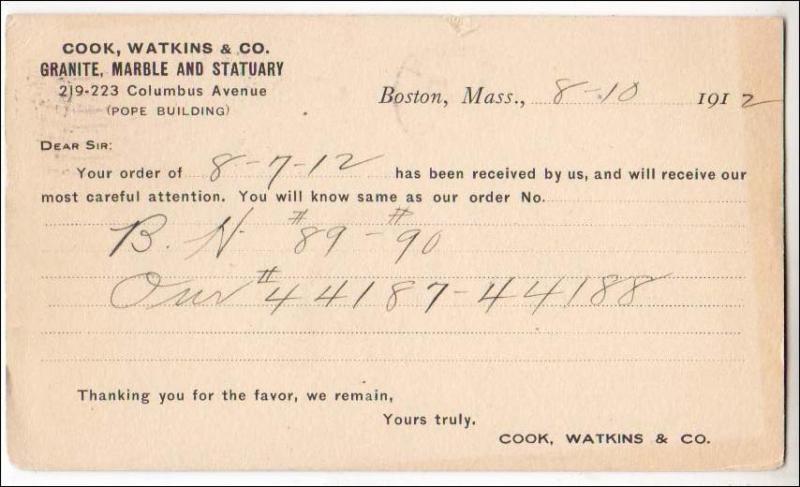 COOK, WATKINS & CO.
GRANITE, MARBLE AND STATUARY
219-223 Columbus Avenue
(POPE BUILDING)
Boston, Mass., 8-10 1912
DEAR SIR:
Your order of 8-7-12 has been received by us, and will receive our
most careful attention. You will know same as our order No.
B. N #89-#90
Our #44187-44188
Thanking you for the favor, we remain,
Yours truly.
COOK, WATKINS & CO.